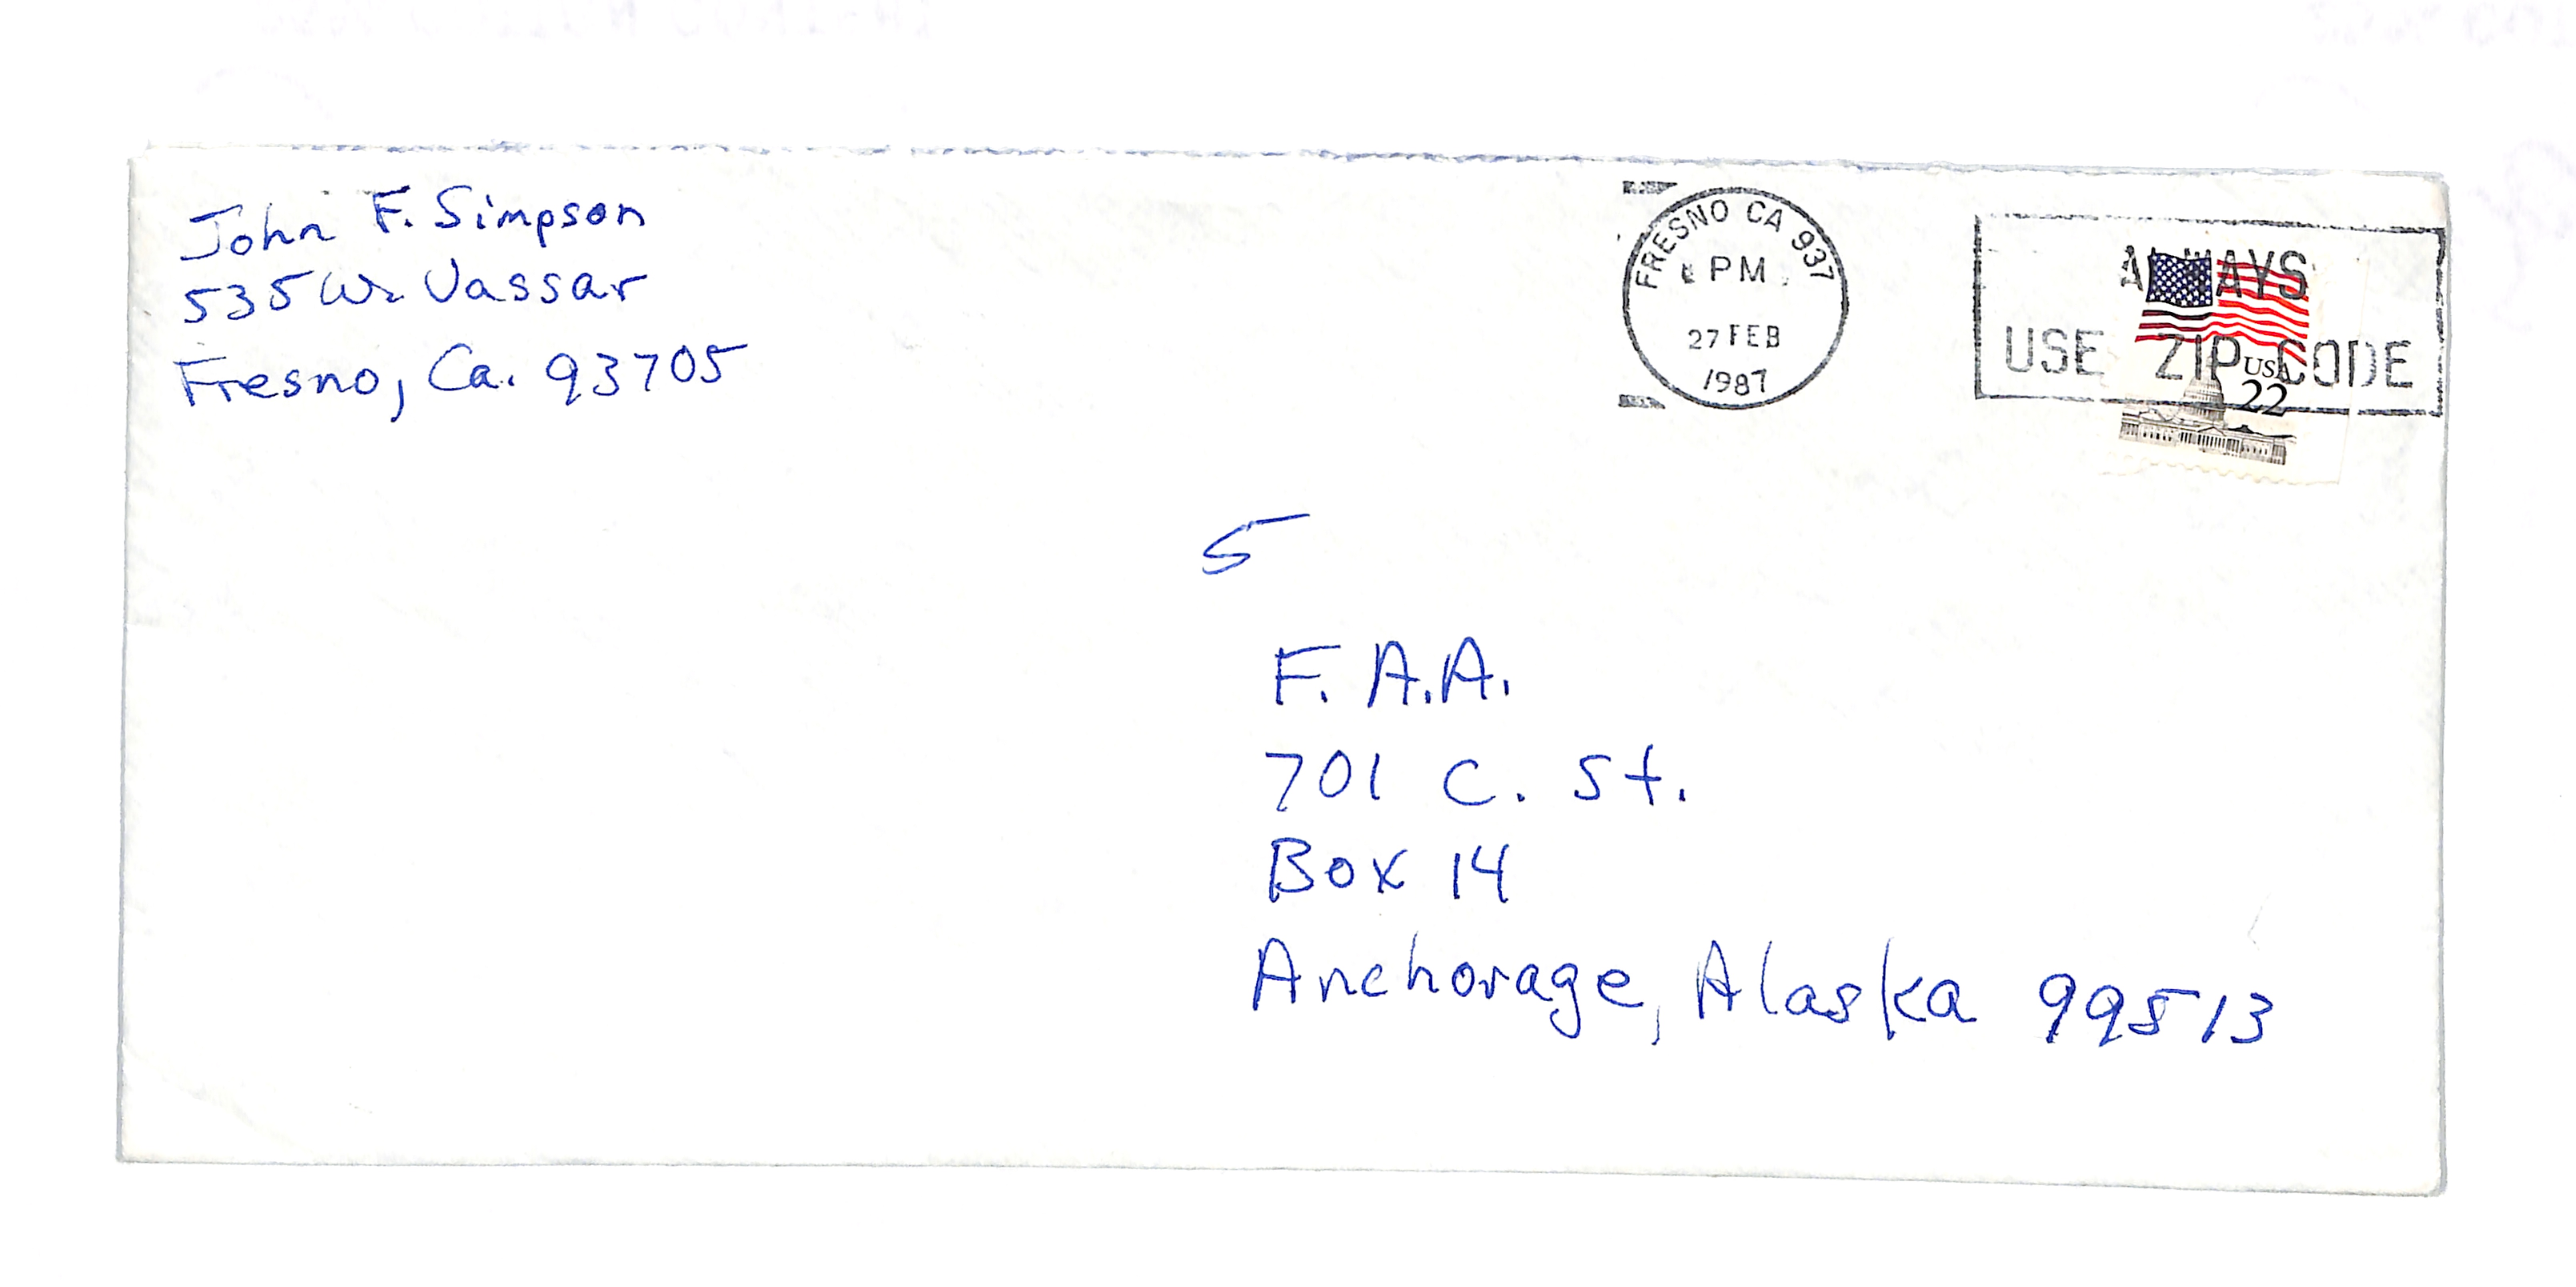 John F. Simpson
535 W. Vassar
Fresno, Ca. 93705
FRESNO CA 937
PM
27 FEB
1987
ALWAYS
USE ZIP CODE
USA
22
5
F. A.A.
701 C. St.
Box 14
Anchorage, Alaska 99513